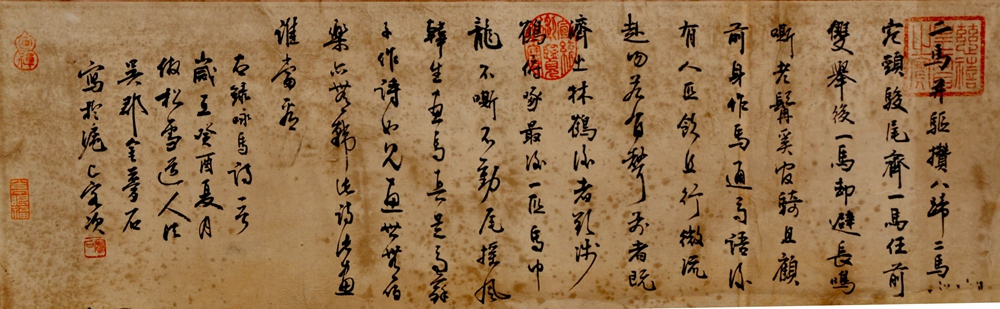 二馬并驅攢八蹄二馬
宛頸駿尾齊一馬任前
雙舉後一馬却避長鳴
嘶老髯奚官騎且顧
前身作馬通馬語後
有八匹飲且行微流
赴吻若有聲前者既
濟出林鶴後者欲涉
鶴俯啄最後一匹馬中
龍不嘶不動尾搖風
韓生畫馬真是馬蘇
子作詩如見畫世無伯
樂亦無韓此詩此畫
誰當看
右錄咏馬詩一首
歲在癸酉夏月
仿松雪道人法
吳郡金夢石
寫於滬上客次